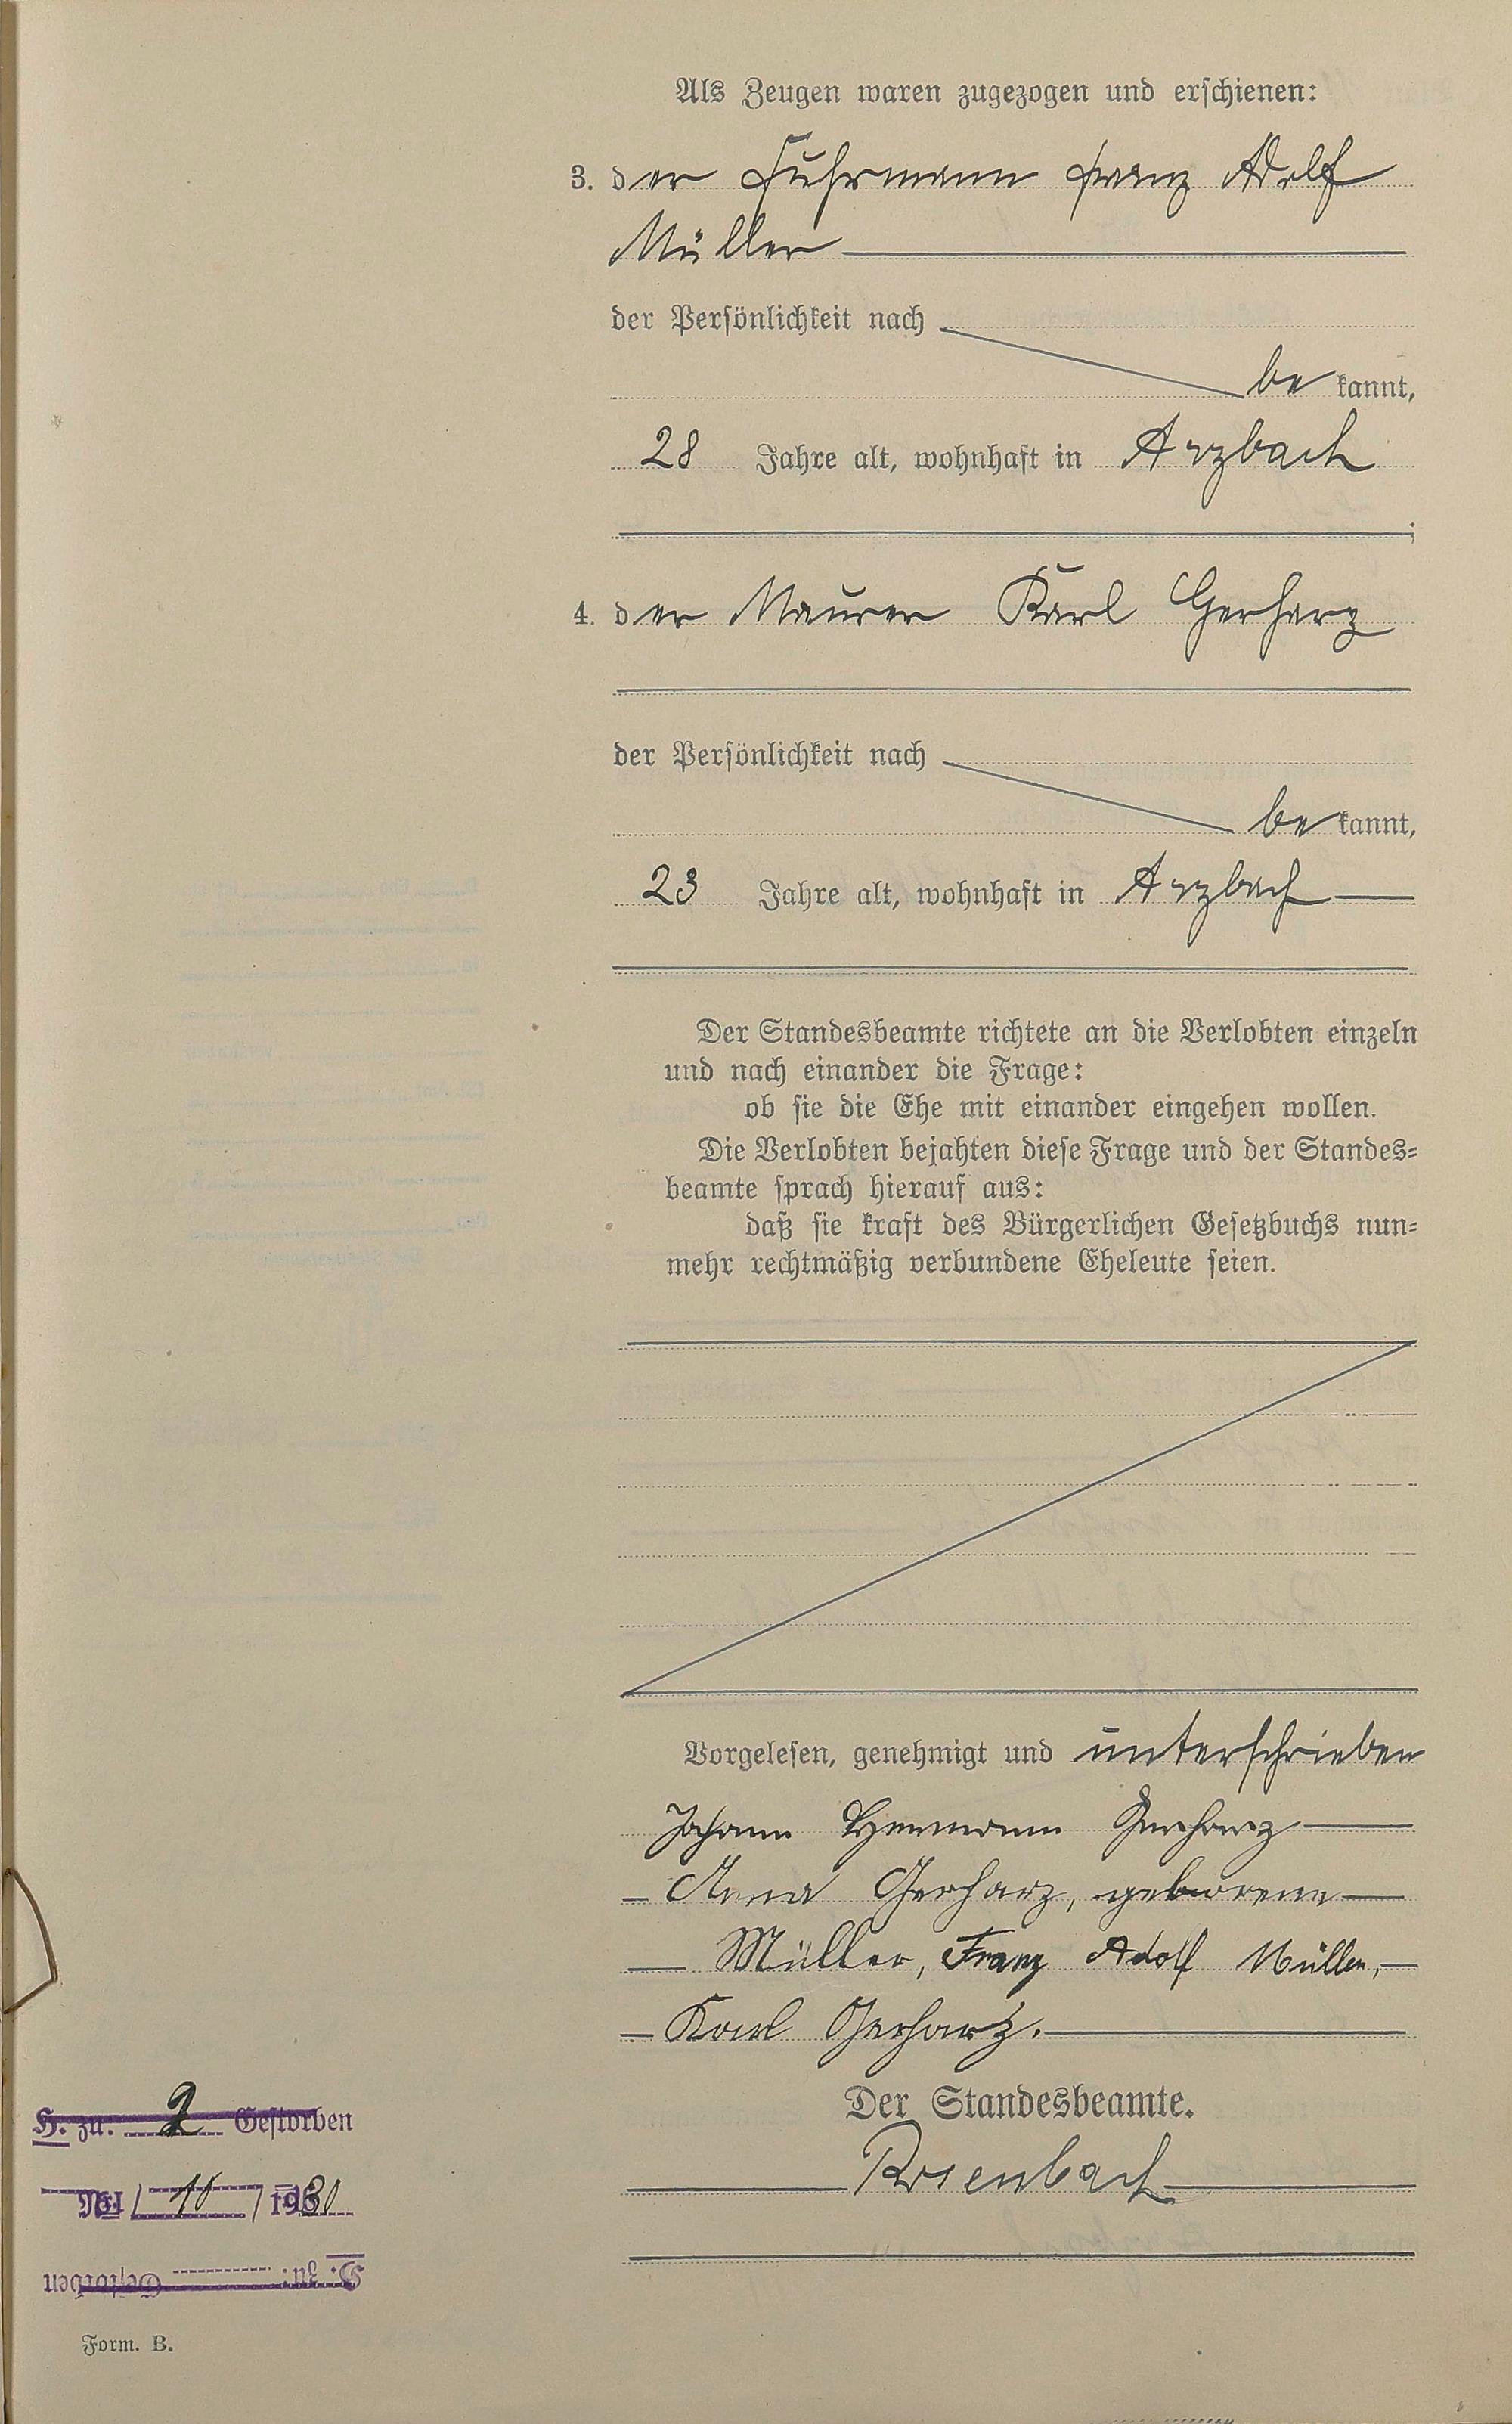 Als Zeugen waren zugezogen und erschienen:
3. der Fuhrmann Franz Adolf
Müller
der Persönlichkeit nach
be kannt,
28 Jahre alt, wohnhaft in Arzbach
;
4. der Maurer Karl Gerharz
der Persönlichkeit nach
be kannt,
23 Jahre alt, wohnhaft in Arzbach
Der Standesbeamte richtete an die Verlobten einzeln
und nach einander die Frage:
ob sie die Ehe mit einander eingehen wollen.
Die Verlobten bejahten diese Frage und der Standes=
beamte sprach hierauf aus:
daß sie kraft des Bürgerlichen Gesetzbuchs nun=
mehr rechtmäßig verbundene Eheleute seien.
Vorgelesen, genehmigt und unterschrieben
Johann Hermann Gerharz
Anna Gerharz, geborene
Müller, Franz Adolf Müller,
Karl Gerharz.
Der Standesbeamte.
Rosenbach
H. zu: 2 Gestorben
Nr. 10 / 1931
H. zu: Gestorben
Form. B.